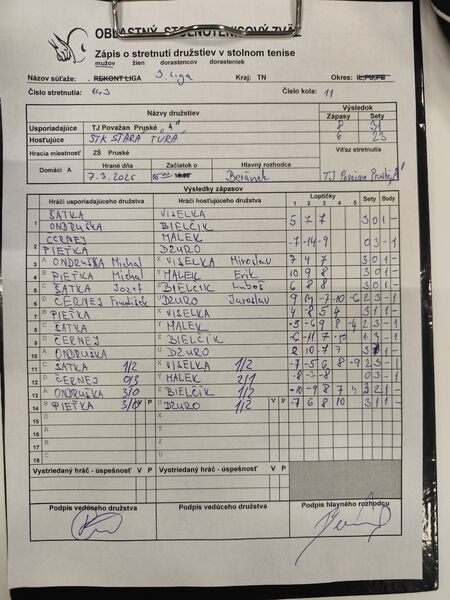 OBLASTNÝ STOLNOTENISOVÝ ZVÄZ
Zápis o stretnutí družstiev v stolnom tenise
mužov žien dorastencov dorasteniek
Názov súťaže: REKONT LIGA 3. Liga Kraj: TN Okres:
Číslo stretnutia: 143 Číslo kola: 11
Názvy družstiev Výsledok
Zápasy Sety
Usporiadajúce TJ Považan Pruské "A" 8 31
Hosťujúce STK STARÁ TURÁ 6 23
Hracia miestnosť ZŠ Pruské Víťaz stretnutia
Hrané dňa Začiatok o Hlavný rozhodca
Domáci A 7.3.2026 Beránek TJ Považan Pruské "A"
Výsledky zápasov
Hráči usporiadajúceho družstva Hráči hosťujúceho družstva Loptičky Sety Body
1 2 3 4 5
1 ŠATKA VISELKA 5 7 7 3 0 1 -
ONDRUŠKA BIELČIK
2 ČERNEJ MALEK -7 -14 -9 0 3 - 1
PIEŤKA DZURO
3 A ONDRUŠKA Michal X VISELKA Miroslav 7 4 7 3 0 1 -
4 B PIEŤKA Michal Y MALEK Erik 10 9 8 3 0 1 -
5 C ŠATKA Jozef Z BIELČIK Ľuboš 6 8 8 3 0 1 -
6 D ČERNEJ František U DZURO Jaroslav
7 B PIEŤKA X VISELKA
8 C ŠATKA Y MALEK -5 -6 9 8 -4 2 3 - 1
9 D ČERNEJ Z BIELČIK
10 A ONDRUŠKA U DZURO
11 C ŠATKA 1/2 X VISELKA 1/2 -7 -5 6 8 -9 2 3 - 1
12 D ČERNEJ 0/3 Y MALEK 2/1 0 3 - 1
13 A ONDRUŠKA 3/0 Z BIELČIK 1/2 -10 -9 8 7 4 3 2 1 -
14 B PIEŤKA 3/0 V P U DZURO 1/2 V P -7 6 8 10 3 1 1 -
15 D X
16 A Y
17 B Z
18 C U
Vystriedaný hráč - úspešnosť V P Vystriedaný hráč - úspešnosť V P
Podpis vedúceho družstva Podpis vedúceho družstva Podpis hlavného rozhodcu